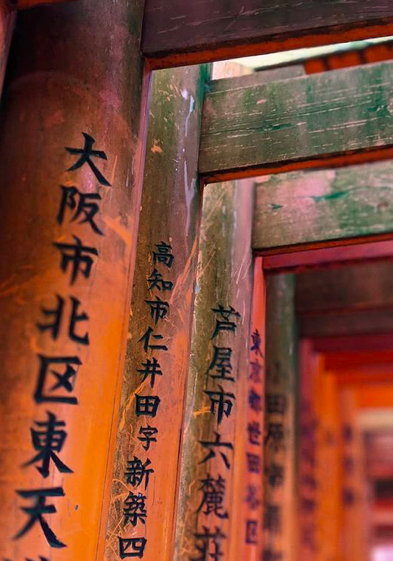 大阪市北区東天
高知市仁井田字新築四
芦屋市六麓荘
東京都世田谷区
小田原市